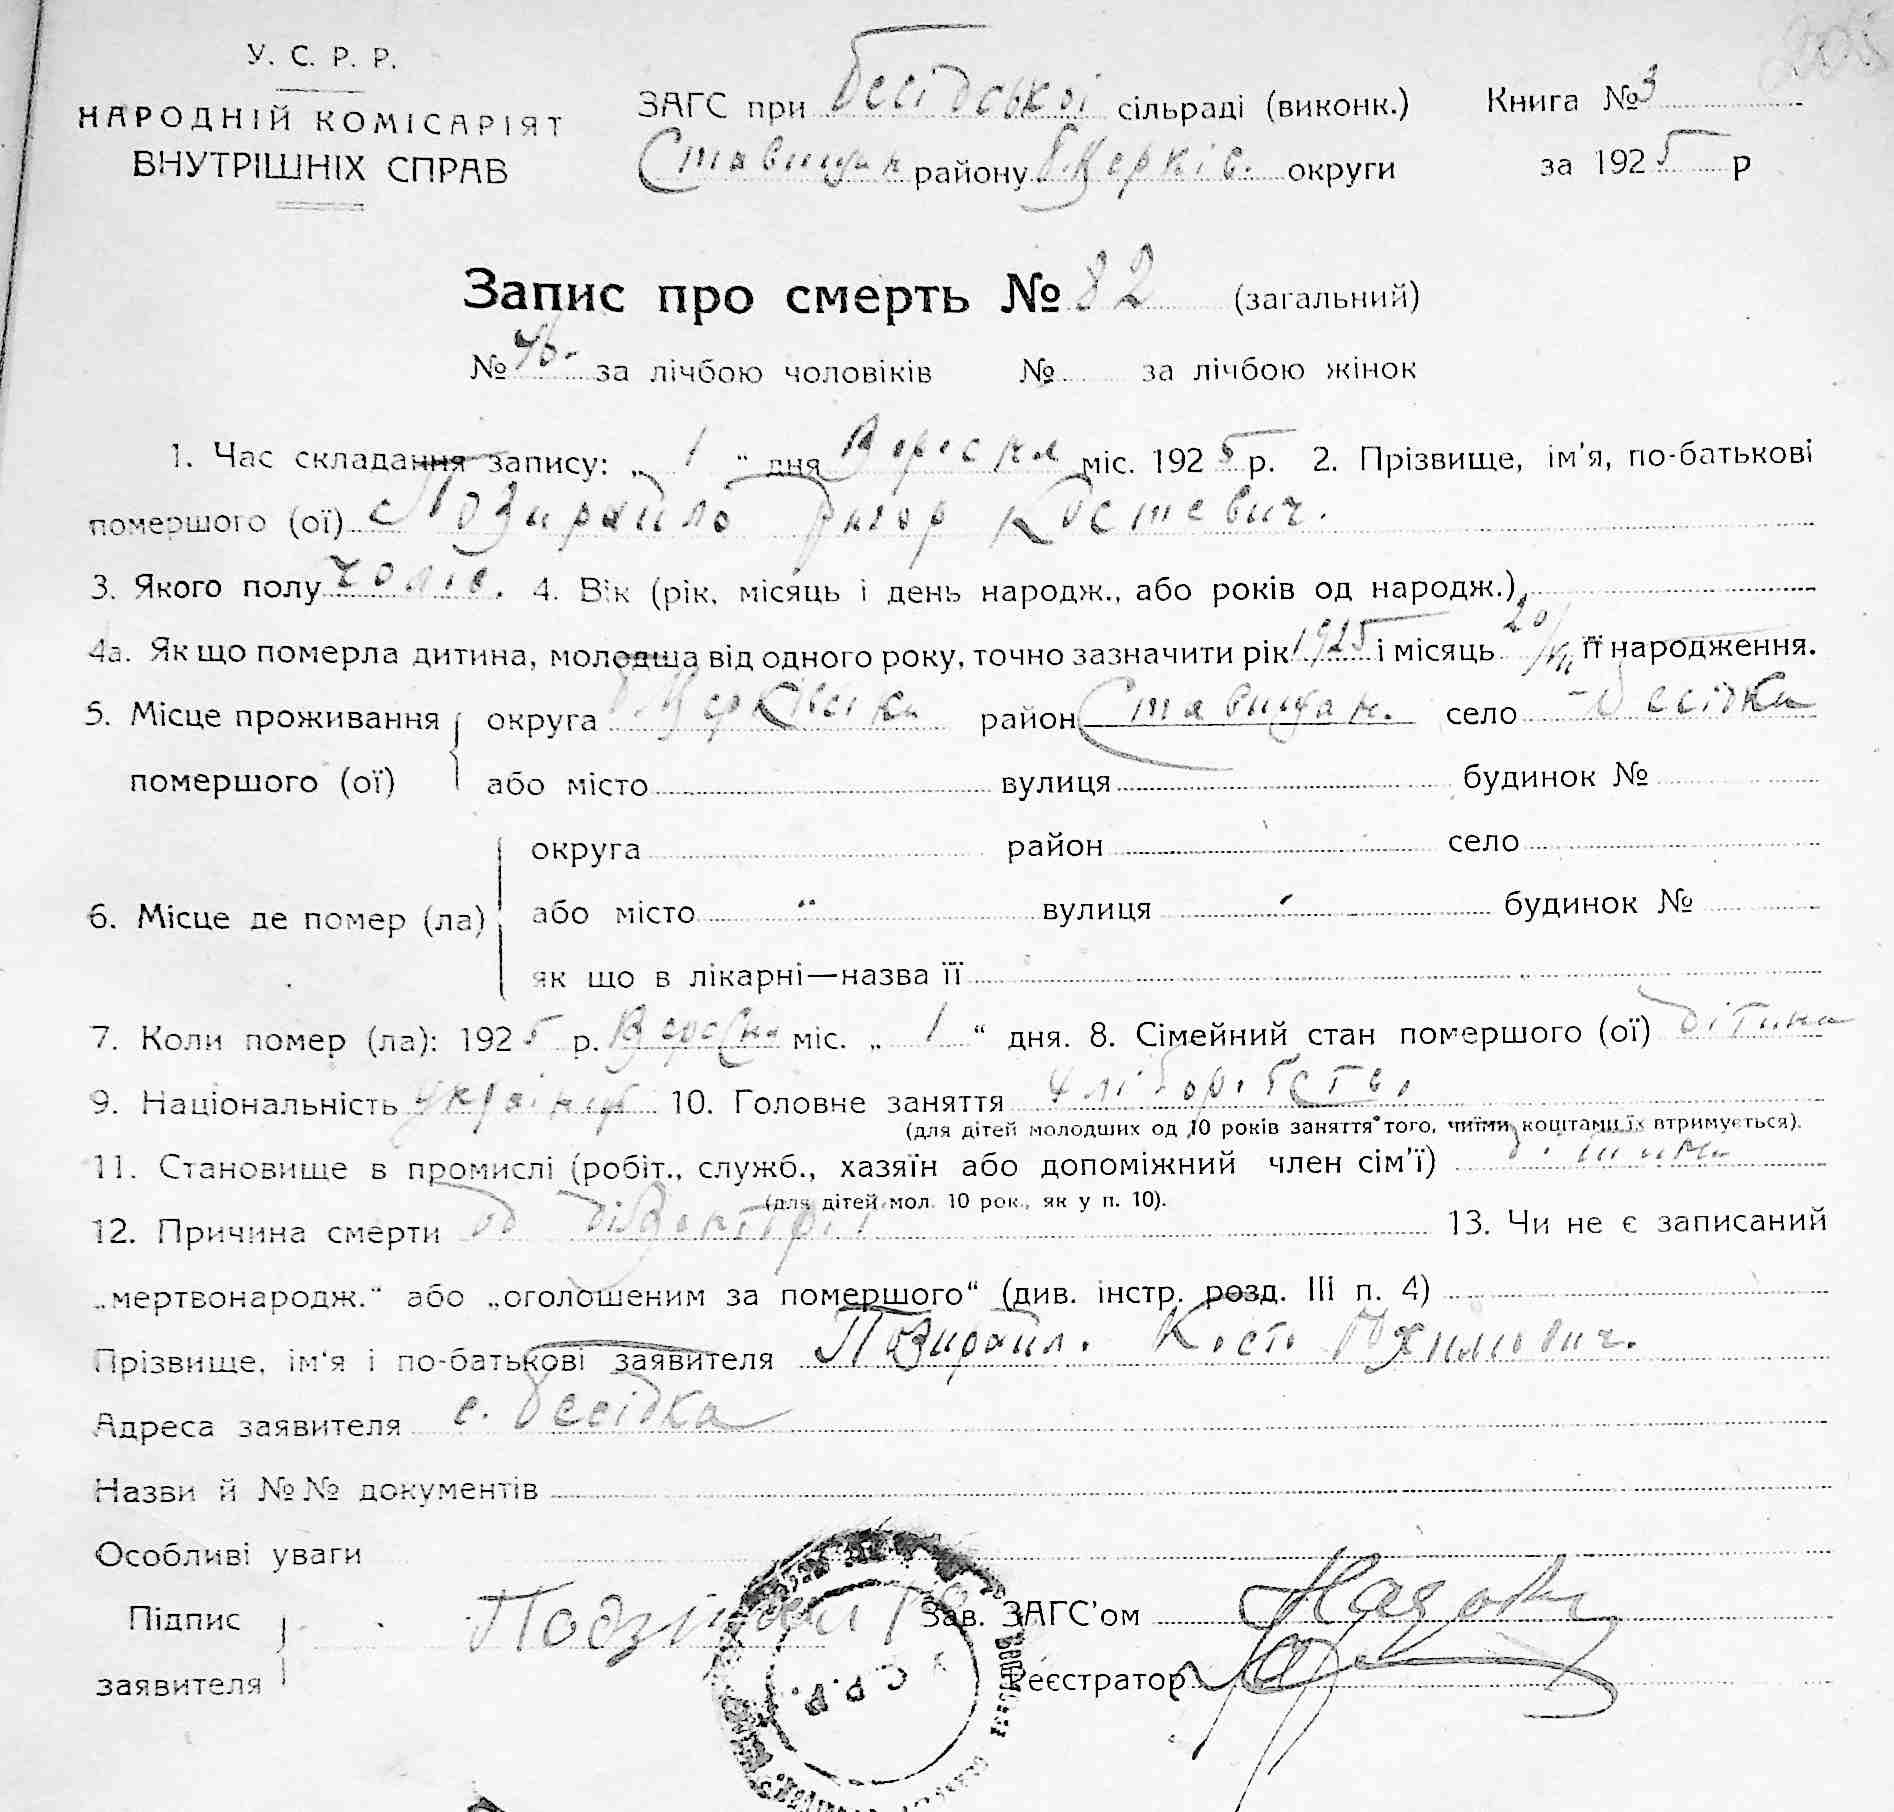 205
У. С. Р. Р.
НАРОДНІЙ КОМІСАРІЯТ
ВНУТРІШНІХ СПРАВ
ЗАГС при Бесідської сільраді (виконк.) Книга № 3
Ставищан району Б Церків. округи за 1925 р
Запис про смерть № 82 (загальний)
№ 46- за лічбою чоловіків № за лічбою жінок
1. Час складання запису: „ 1 “ дня Вересня міс. 1925 р. 2. Прізвище, ім'я, по-батькові
помершого (ої) Позирайло Костевич.
3. Якого полу чолов. 4. Вік (рік, місяць і день народж., або років од народж.)
4а. Як що померла дитина, молодша від одного року, точно зазначити рік 1925 і місяць 20/VII її народження.
5. Місце проживання округа район Ставищан. село Бесідка
помершого (ої) або місто вулиця будинок №
округа район село
6. Місце де помер (ла) або місто “ вулиця будинок №
як що в лікарні—назва її
7. Коли помер (ла): 1925 р. Вересн. міс. „ 1 “ дня. 8. Сімейний стан помершого (ої) дітина
9. Національність українц 10. Головне заняття
(для дітей молодших од 10 років заняття того, чиїми коштами їх втримується).
11. Становище в промислі (робіт., служб., хазяїн або допоміжний член сім'ї) дітина
(для дітей мол. 10 рок., як у п. 10).
12. Причина смерти од 13. Чи не є записаний
„мертвонародж.“ або „оголошеним за помершого“ (див. інстр. розд. III п. 4)
Прізвище, ім'я і по-батькові заявителя Позирайл. Кость Юхимович.
Адреса заявителя с. Бесідка
Назви й №№ документів
Особливі уваги
Підпис Зав. ЗАГС'ом
заявителя Реєстратор
С.Р.Р.